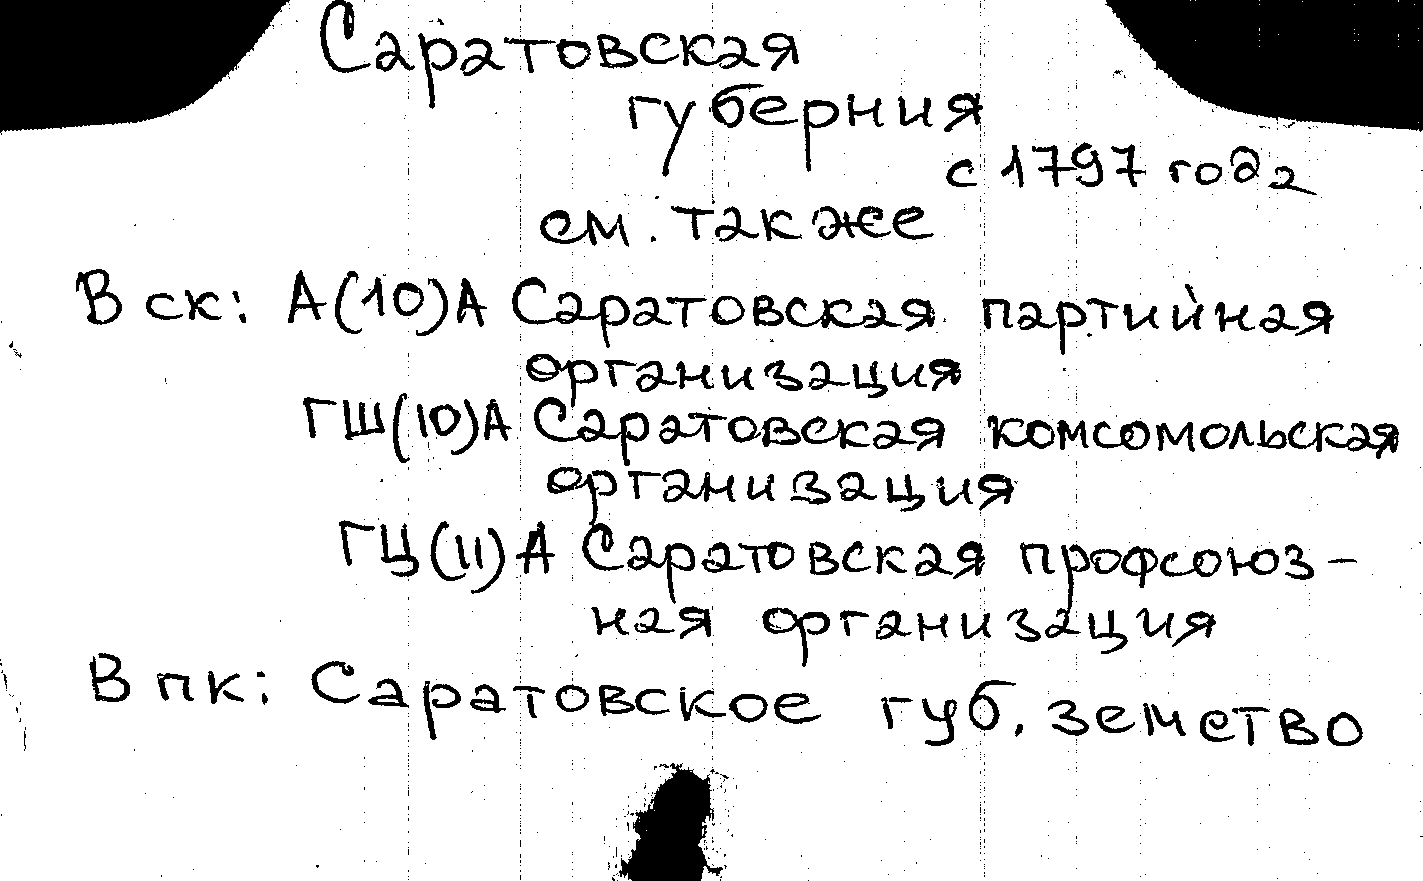 Саратовская
губерния
с 1797 года
см. также
В ск: А(10)А Саратовская партийная
организация
ГШ(10)А Саратовская комсомольская
организация
ГЦ(11)А Саратовская профсоюз-
ная организация
В пк: Саратовское губ. земство